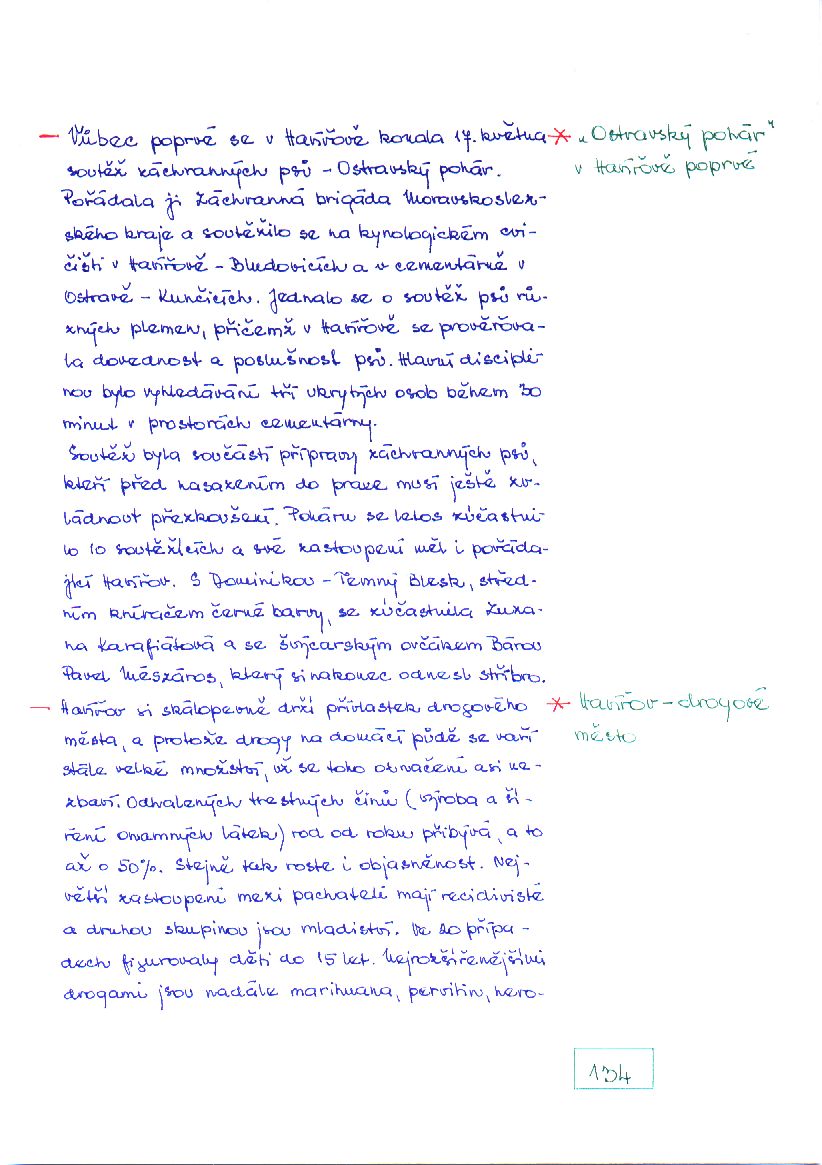 — Vůbec poprvé se v Havířově konala 17. května * „Ostravský pohár"
soutěž záchranných psů – Ostravský pohár. v Havířově poprvé
Pořádala ji Záchranná brigáda Moravskoslez-
ského kraje a soutěžilo se na kynologickém cvi-
čišti v Havířově – Bludovicích a v cementárně v
Ostravě – Kunčicích. Jednalo se o soutěž psů rů-
zných plemen, přičemž v Havířově se prověřova-
la dovednost a poslušnost psů. Hlavní disciplí-
nou bylo vyhledávání tří ukrytých osob během 30
minut v prostorách cementárny.
Soutěž byla součástí přípravy záchranných psů,
kteří před nasazením do praxe musí ještě zv-
ládnout přezkoušení. Poháru se letos zúčastni-
lo 10 soutěžících a své zastoupení měl i pořáda-
jící Havířov. S Dominikou – Temný Blesk, střed-
ním kníračem černé barvy, se zúčastnila Zuza-
na Karafiátová a se švýcarským ovčákem Bárou
Pavel Mészáros, který si nakonec odnesl stříbro.
— Havířov si skálopevně drží přívlastek drogového * Havířov – drogové
města, a protože drogy na domácí půdě se vaří město
stále velké množství, už se toho označení asi ne-
zbaví. Odhalených trestných činů (výroba a ší-
ření omamných látek) rod od roku přibývá, a to
až o 50%. Stejně tak roste i objasněnost. Nej-
větší zastoupení mezi pachateli mají recidivisté
a druhou skupinou jsou mladiství. Ve 20 přípa-
dech figurovaly děti do 15 let. Nejrozšířenějšími
drogami jsou nadále marihuana, pervitin, hero-
134